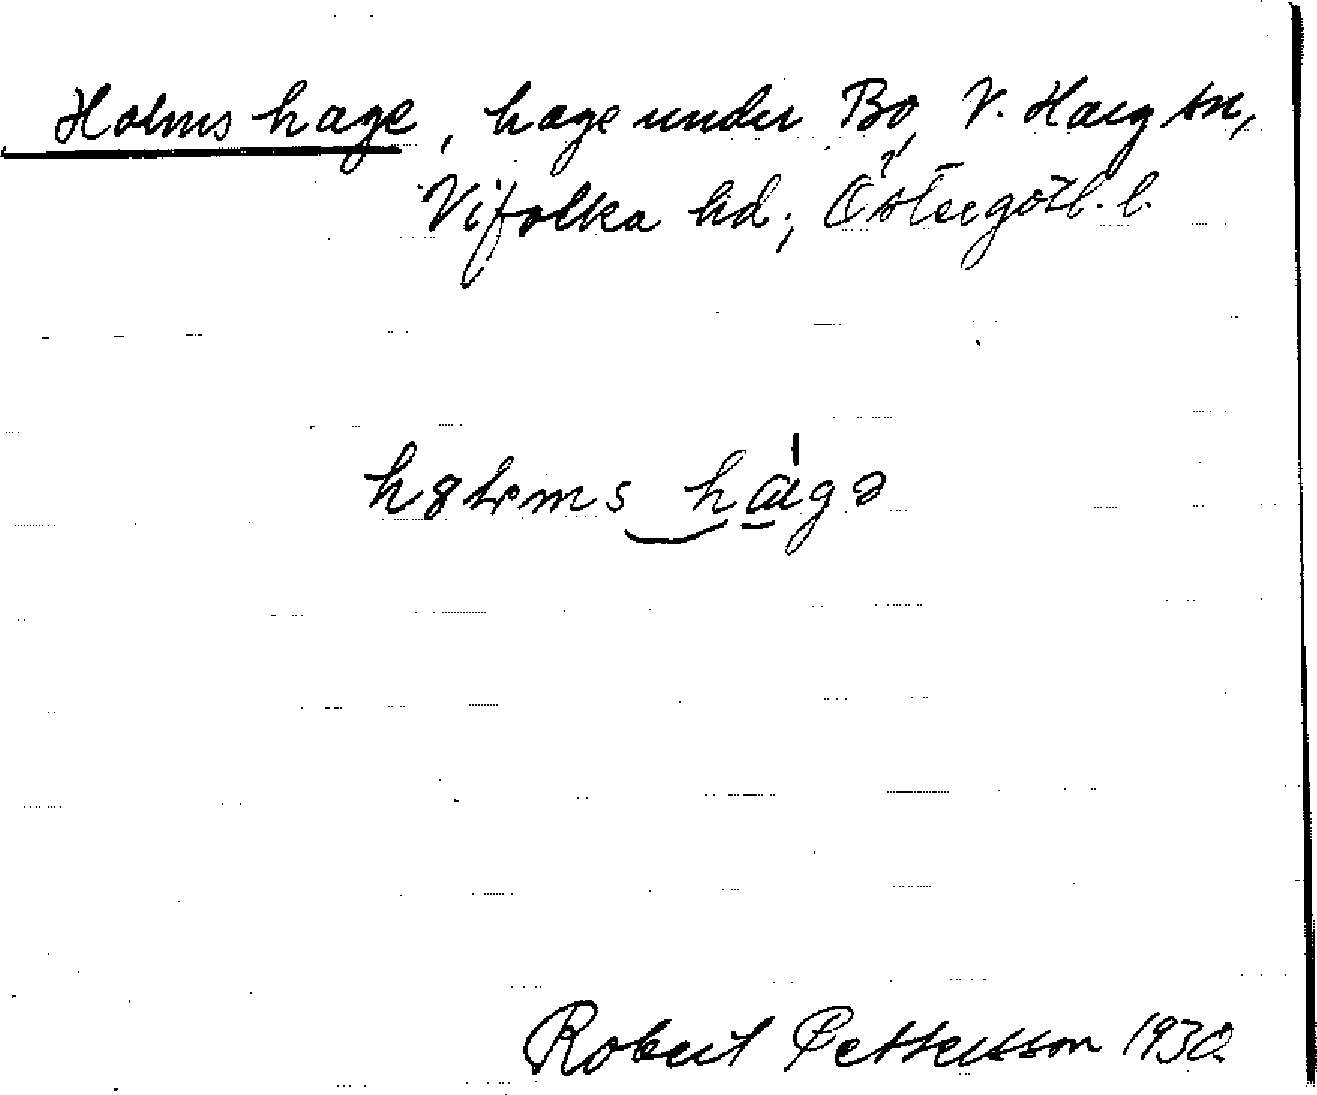 Holms hage, hage under Bo, V. Harg sn,
Vifolka hd, Östergötl. l.
hois
Robert Pettersson 1930